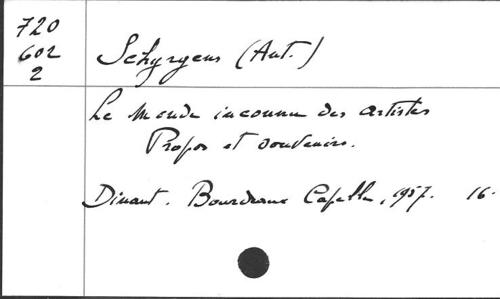 720
602
2
Schyrgens (Ant.)
Le Monde inconnu des artistes
Propos et souvenirs.
Dinant. Bourdeaux Capelle, 1957. 16.